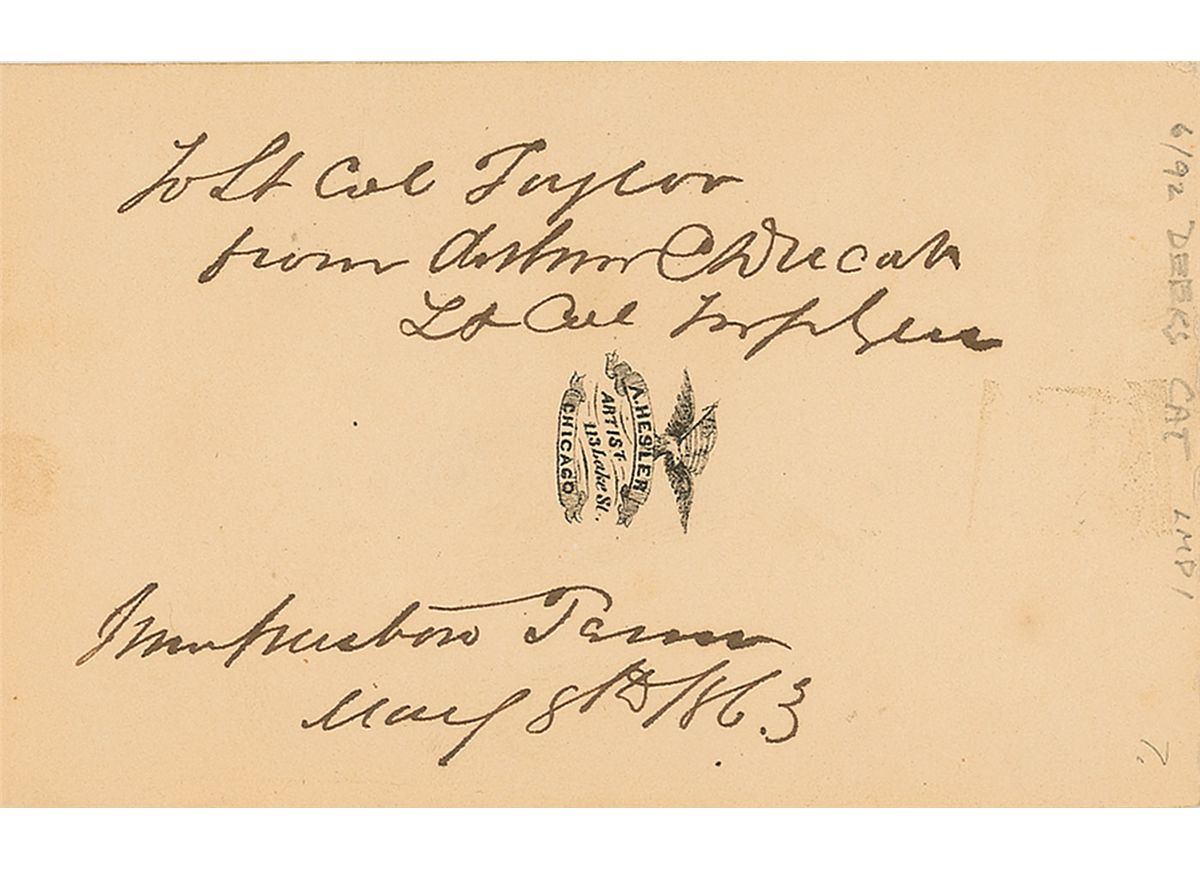 To Lt Col Taylor
from Arthur C Ducat
Lt Col Insp Genl
A. HESLER
ARTIST
113 Lake St.,
CHICAGO
Murfreesboro Tenn
May 8th 1863
6/92 DEEKS CAT LMD1
7.